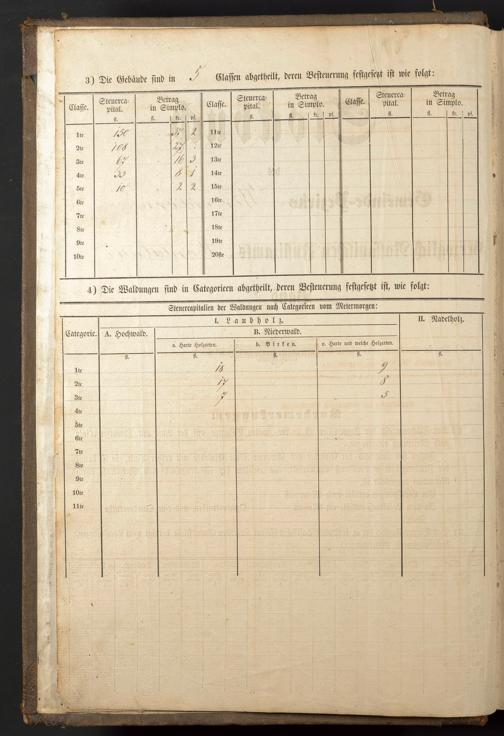 3) Die Gebäude sind in 5 Classen abgetheilt, deren Besteuerung festgesetzt ist wie folgt:
Classe. Steuerca-pital. Betrag in Simplo. Classe. Steuerca-pital. Betrag in Simplo. Classe. Steuerca-pital. Betrag in Simplo.
fl. fl. kr. pf. fl. fl. kr. pf. fl. fl. kr. pf.
1te 150 37 2 11te
2te 108 27 12te
3te 67 16 3 13te
4te 33 8 1 14te
5te 10 2 2 15te
6te 16te
7te 17te
8te 18te
9te 19te
10te 20ste
4) Die Waldungen sind in Categorieen abgetheilt, deren Besteuerung festgesetzt ist, wie folgt:
Steuercapitalien der Waldungen nach Categorieen vom Metermorgen:
Categorie. I. Laubholz. II. Nadelholz.
A. Hochwald. B. Niederwald.
a. Harte Holzarten. b. Birken. c. Harte und weiche Holzarten.
fl. fl. fl. fl. fl.
1te 18 9
2te 17 8
3te 7 5
4te
5te
6te
7te
8te
9te
10te
11te